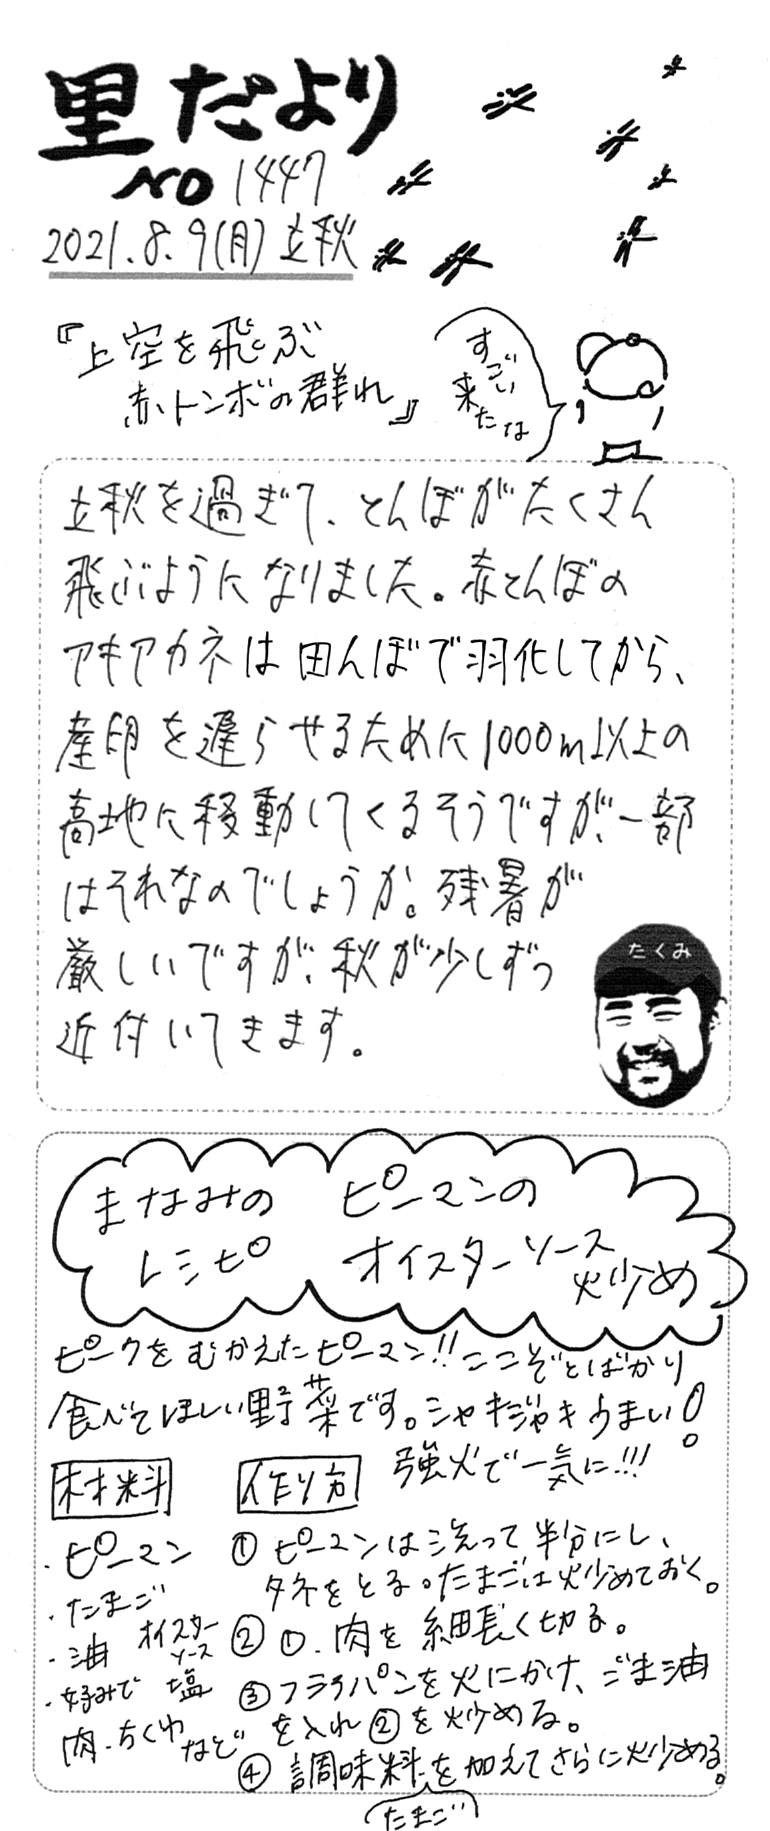 里だより
NO 1447
2021.8.9(月)立秋
『上空を飛ぶ
赤トンボの群れ』
すごい
来たな
立秋を過ぎて、とんぼがたくさん
飛ぶようになりました。赤とんぼの
アキアカネは田んぼで羽化してから、
産卵を遅らせるために1000m以上の
高地に移動してくるそうですが、一部
はそれなのでしょうか。残暑が
厳しいですが、秋が少しずつ
近付いてきます。
たくみ
まなみの
レシピ
ピーマンの
オイスターソース
炒め
ピークをむかえたピーマン!!ここぞとばかり
食べてほしい野菜です。シャキジャキうまい!
強火で一気に!!!
材料
・ピーマン
・たまご
・油 オイスターソース
・好みで 塩
肉・ちくわなど
作り方
①ピーマンは洗って半分にし、
タネをとる。たまごは炒めておく。
②①、肉を細長く切る。
③フライパンを火にかけ、ごま油
を入れ②を炒める。
④調味料を加えてさらに炒める。
(たまご)